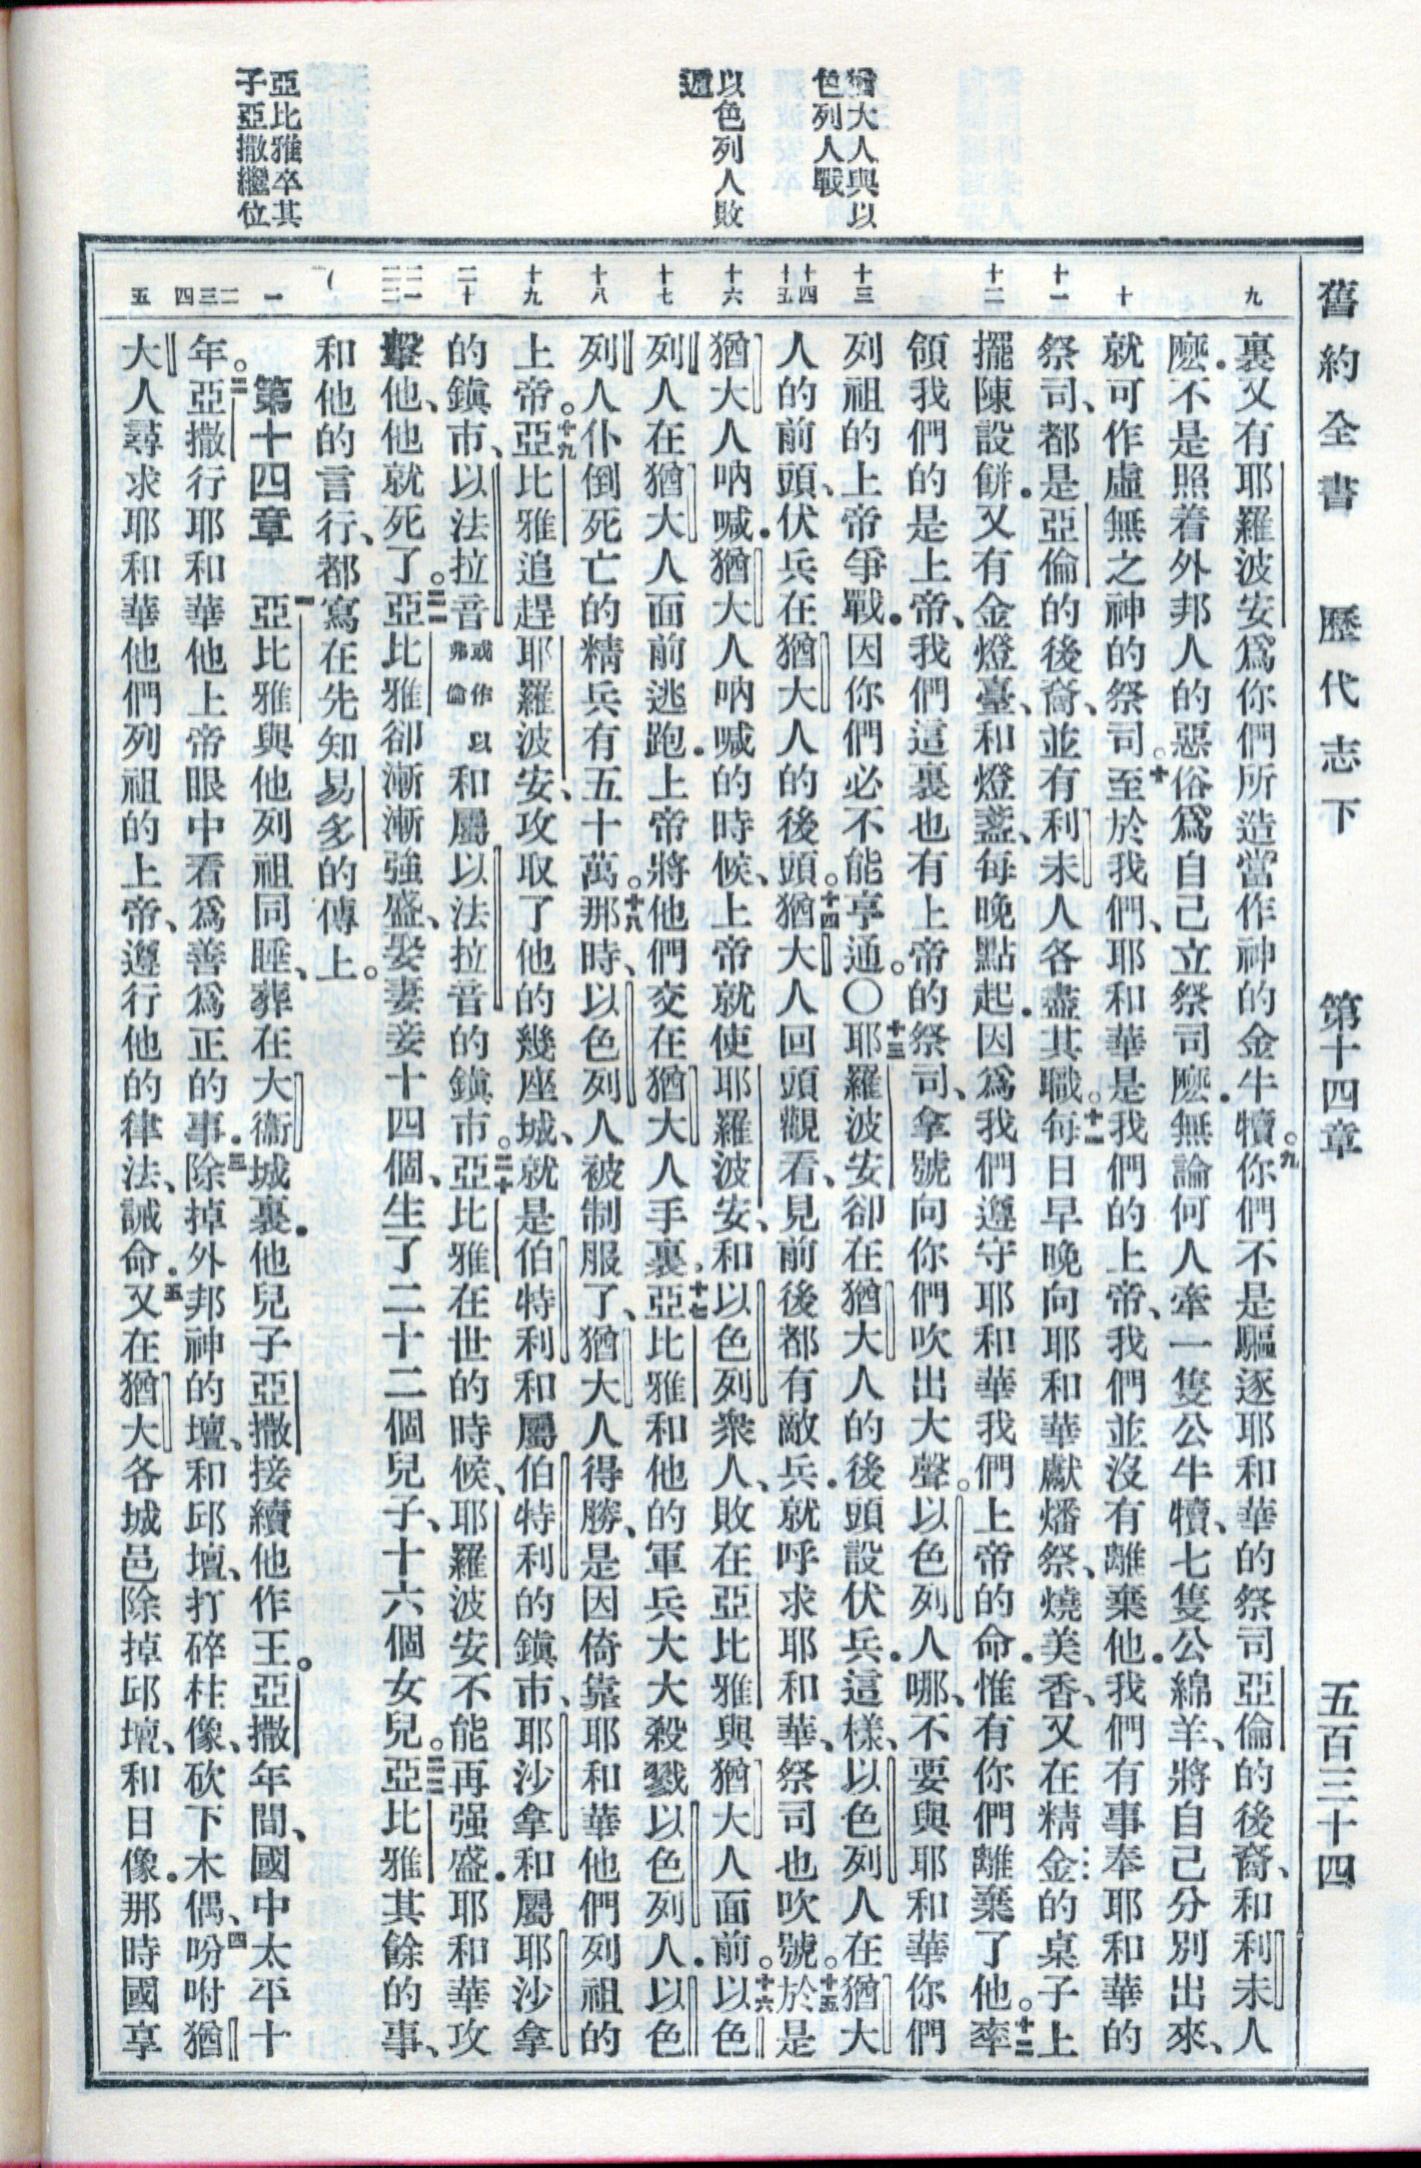 舊約全書　歷代志下　第十四章　五百三十四
猶大人與以
色列人戰
以色列人敗
遁
亞比雅卒其
子亞撒繼位
九
十
十一
十二
十三
十四
十五
十六
十七
十八
十九
二十
二一
二二
一
二
三
四
五
裏又有耶羅波安爲你們所造當作神的金牛犢。九你們不是驅逐耶和華的祭司亞倫的後裔、和利未人
麽．不是照着外邦人的惡俗爲自己立祭司麽．無論何人牽一隻公牛犢、七隻公綿羊、將自己分別出來、
就可作虛無之神的祭司。十至於我們、耶和華是我們的上帝、我們並沒有離棄他．我們有事奉耶和華的
祭司、都是亞倫的後裔、並有利未人各盡其職。十一每日早晚向耶和華獻燔祭、燒美香、又在精金的桌子上
擺陳設餅．又有金燈臺、和燈盞、每晚點起．因爲我們遵守耶和華我們上帝的命．惟有你們離棄了他。十二率
領我們的是上帝、我們這裏也有上帝的祭司、拿號向你們吹出大聲。以色列人哪、不要與耶和華你們
列祖的上帝爭戰．因你們必不能亨通。〇十三耶羅波安卻在猶大人的後頭設伏兵．這樣、以色列人在猶大
人的前頭、伏兵在猶大人的後頭。十四猶大人回頭觀看、見前後都有敵兵．就呼求耶和華、祭司也吹號。十五於是
猶大人吶喊．猶大人吶喊的時候、上帝就使耶羅波安、和以色列衆人、敗在亞比雅與猶大人面前。十六以色
列人在猶大人面前逃跑．上帝將他們交在猶大人手裏．十七亞比雅和他的軍兵大大殺戮以色列人．以色
列人仆倒死亡的精兵有五十萬。十八那時、以色列人被制服了、猶大人得勝、是因倚靠耶和華他們列祖的
上帝。十九亞比雅追趕耶羅波安、攻取了他的幾座城、就是伯特利和屬伯特利的鎮市、耶沙拿和屬耶沙拿
的鎮市、以法拉音或作以弗倫和屬以法拉音的鎮市。二十亞比雅在世的時候、耶羅波安不能再强盛．耶和華攻
擊他、他就死了。二一亞比雅卻漸漸強盛、娶妻妾十四個、生了二十二個兒子、十六個女兒。二二亞比雅其餘的事、
和他的言行、都寫在先知易多的傳上。
第十四章　一亞比雅與他列祖同睡、葬在大衞城裏．他兒子亞撒接續他作王。亞撒年間、國中太平十
年。二亞撒行耶和華他上帝眼中看爲善爲正的事．三除掉外邦神的壇、和邱壇、打碎柱像、砍下木偶、四吩咐猶
大人尋求耶和華他們列祖的上帝、遵行他的律法、誡命．五又在猶大各城邑除掉邱壇、和日像．那時國享